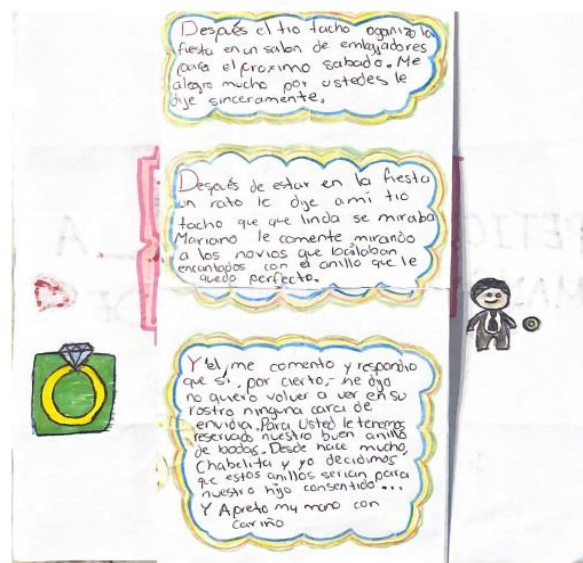 Después el tio tacho oganizo la
fiesta en un salon de embajadores
para el proximo sabado. Me
alegro mucho por ustedes le
dije sinceramente.
Después de estar en la fiesta
un rato le dije a mi tio
tacho que que linda se miraba
Mariano le comente mirando
a los novios que bailaban
encantados con el anillo que le
quedo perfecto.
Y el, me comento y respondio
que si, por cierto,- me dijo
no quiero volver a ver en su
rostro ninguna cara de
envidia. Para Usted le tenemos
reservado nuestro buen anillo
de bodas. Desde hace mucho,
Chabelita y yo decidimos
que estos anillos serian para
nuestro hijo consentido...
Y Apreto my mano con
cariño